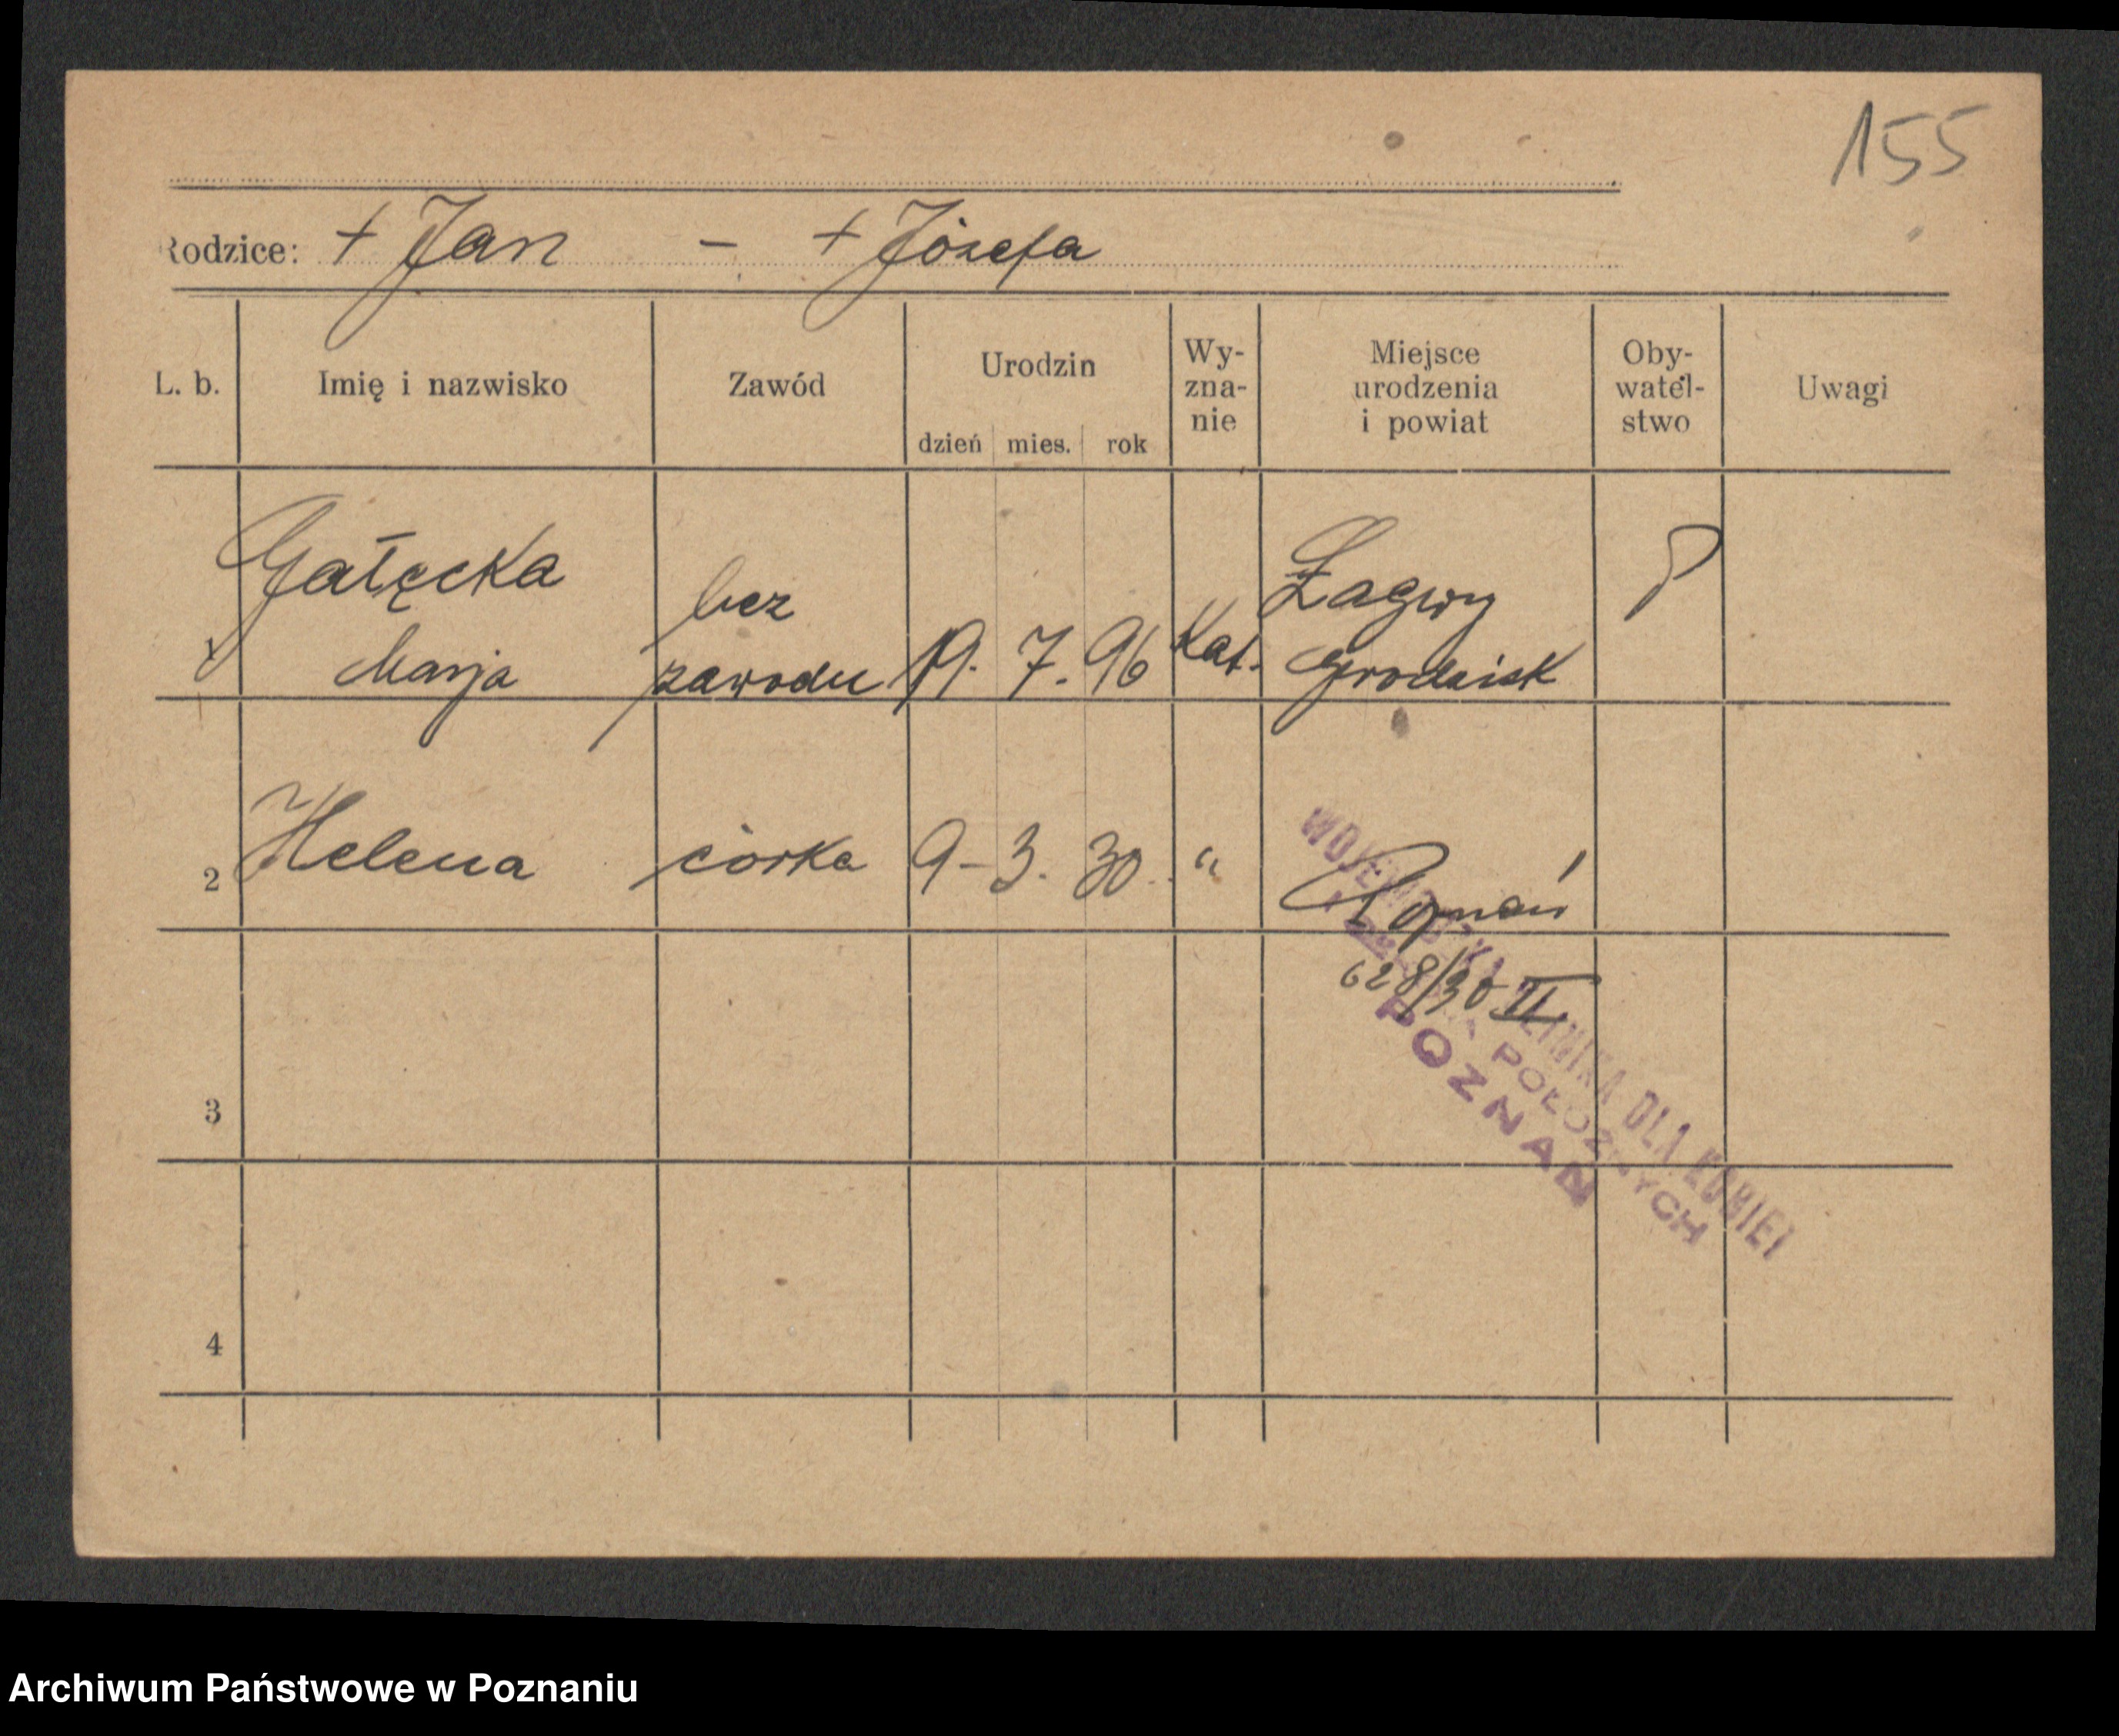 155
Rodzice: + Jan - + Józefa
L. b.
Imię i nazwisko
Zawód
Urodzin
dzień mies. rok
Wy-
zna-
nie
Miejsce
urodzenia
i powiat
Oby-
watel-
stwo
Uwagi
Gałęcka
Marja
bez
zawodu
19. 7. 96
Kat.
Łagwy
Grodzisk
P
2
Helena
córka
9 - 3. 30.
"
Poznań
628/30 II.
WOJEWÓDZKA KLINIKA DLA KOBIET
POŁOŻNYCH
POZNAŃ
3
4
Archiwum Państwowe w Poznaniu